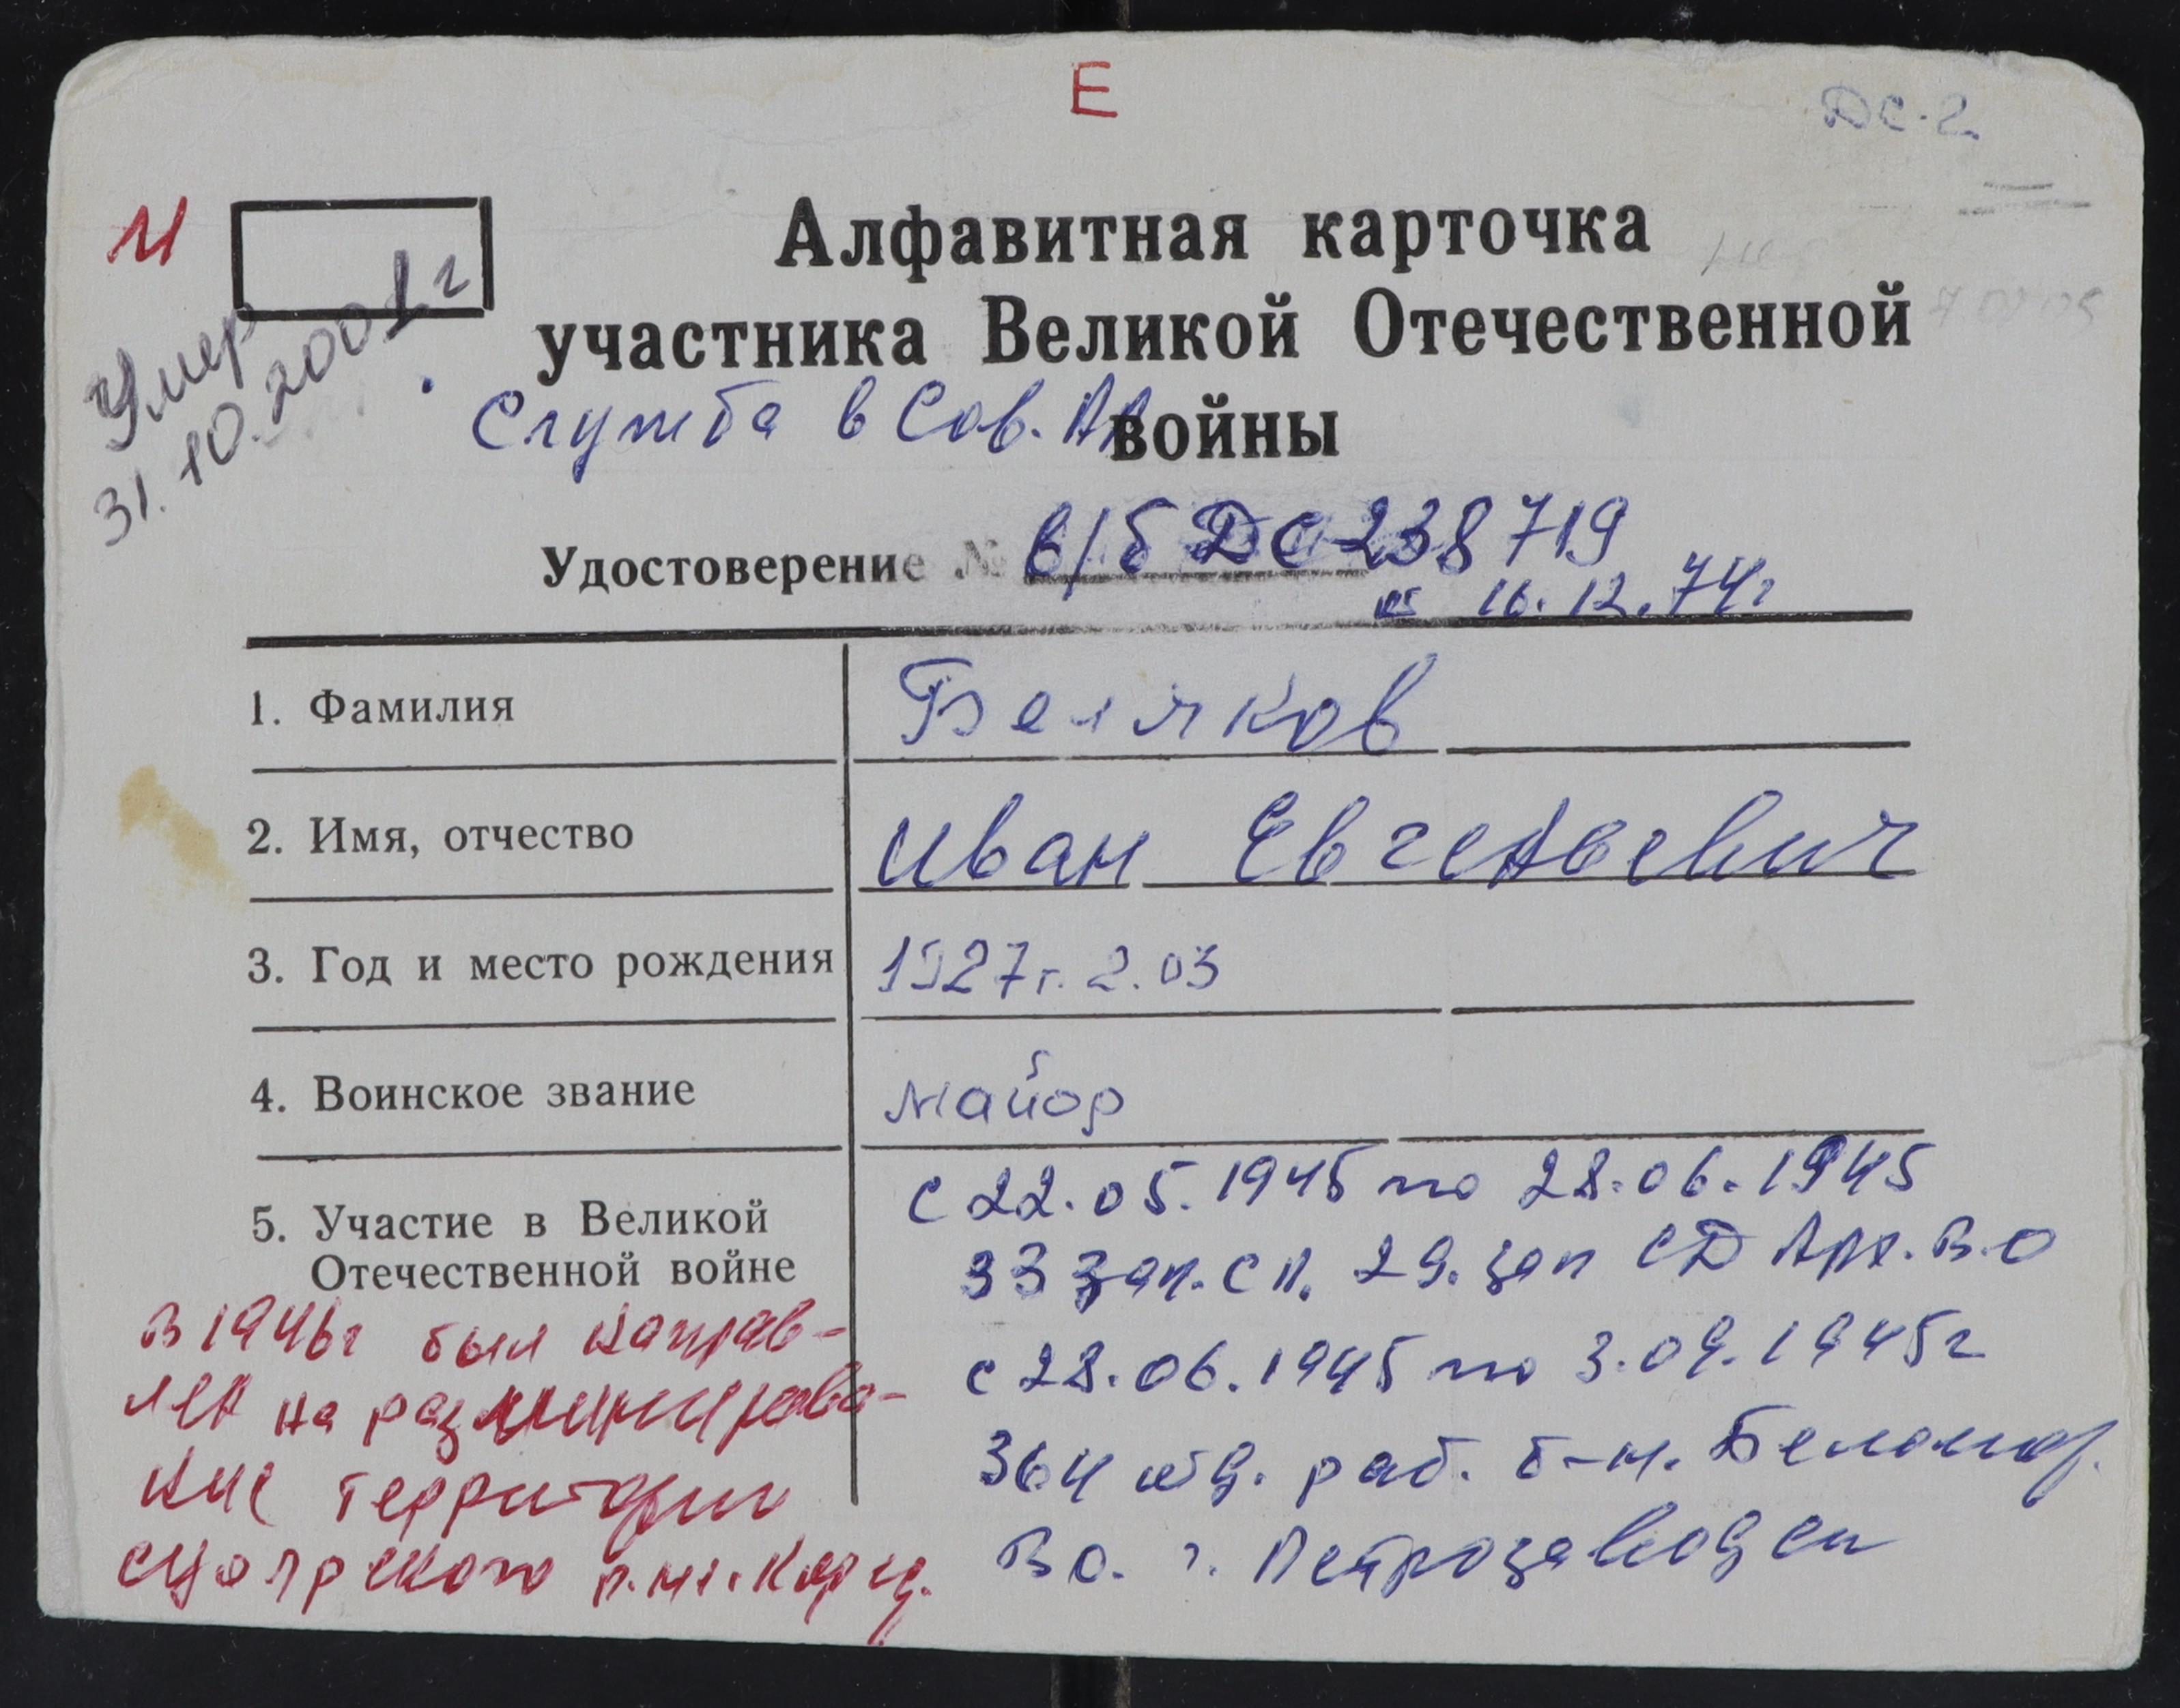 Е
ДС-2
И
Алфавитная карточка
участника Великой Отечественной
войны
Умер
31.10.2001г
Служба в Сов. АР
Удостоверение № в/б ДС 238719
от 16.12.74г
1. Фамилия Беляков
2. Имя, отчество Иван Евгеньевич
3. Год и место рождения 1927г. 2.03
4. Воинское звание майор
5. Участие в Великой
Отечественной войне
с 22.05.1945 по 28.06.1945
33 зап. сп. 29. зап СД Арх. В.О
с 28.06.1945 по 3.09.1945г
364 отд. раб. б-н. Беломор.
ВО. г. Петрозаводск
В 1946г был направ-
лен на разминирова-
ние территории
п.